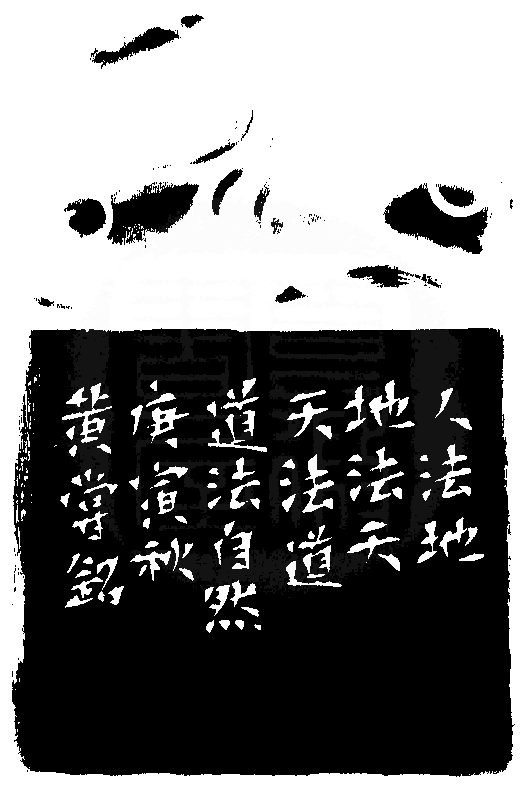 人法地
地法天
天法道
道法自然
庚寅秋
黄尝铭